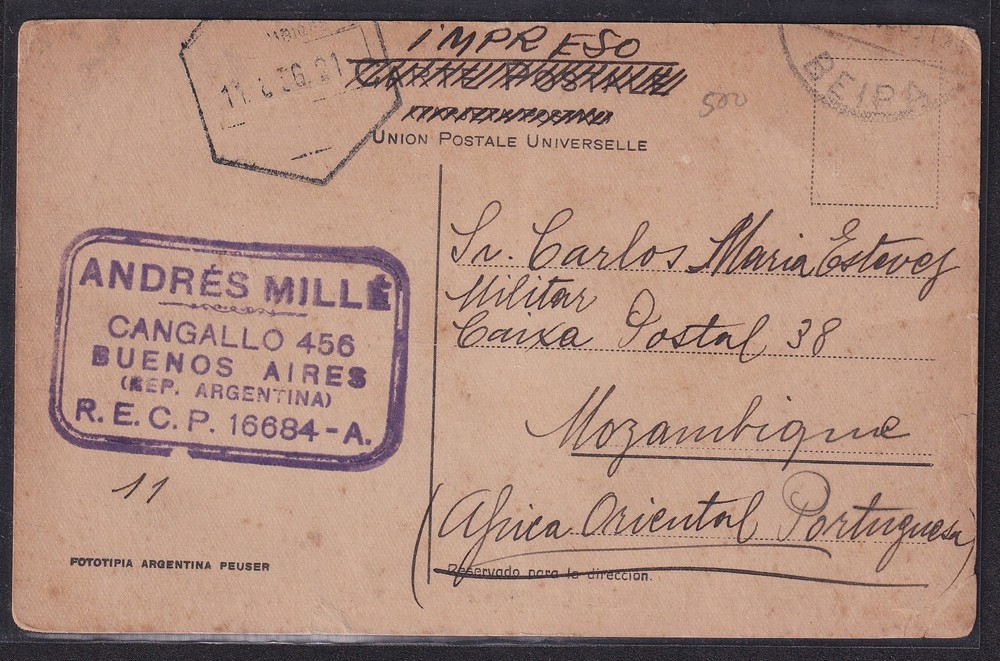 IMPRESO
CARTE POSTALE
UNION POSTALE UNIVERSELLE
500
BEIRA
ANDRÉS MILLÉ
CANGALLO 456
BUENOS AIRES
(REP. ARGENTINA)
R. E. C. P. 16684-A.
11
FOTOTIPIA ARGENTINA PEUSER
Sr. Carlos Maria Estevez
Militar
Caixa Postal 38
Mozambique
(Africa Oriental Portuguesa)
Reservado para la dirección.